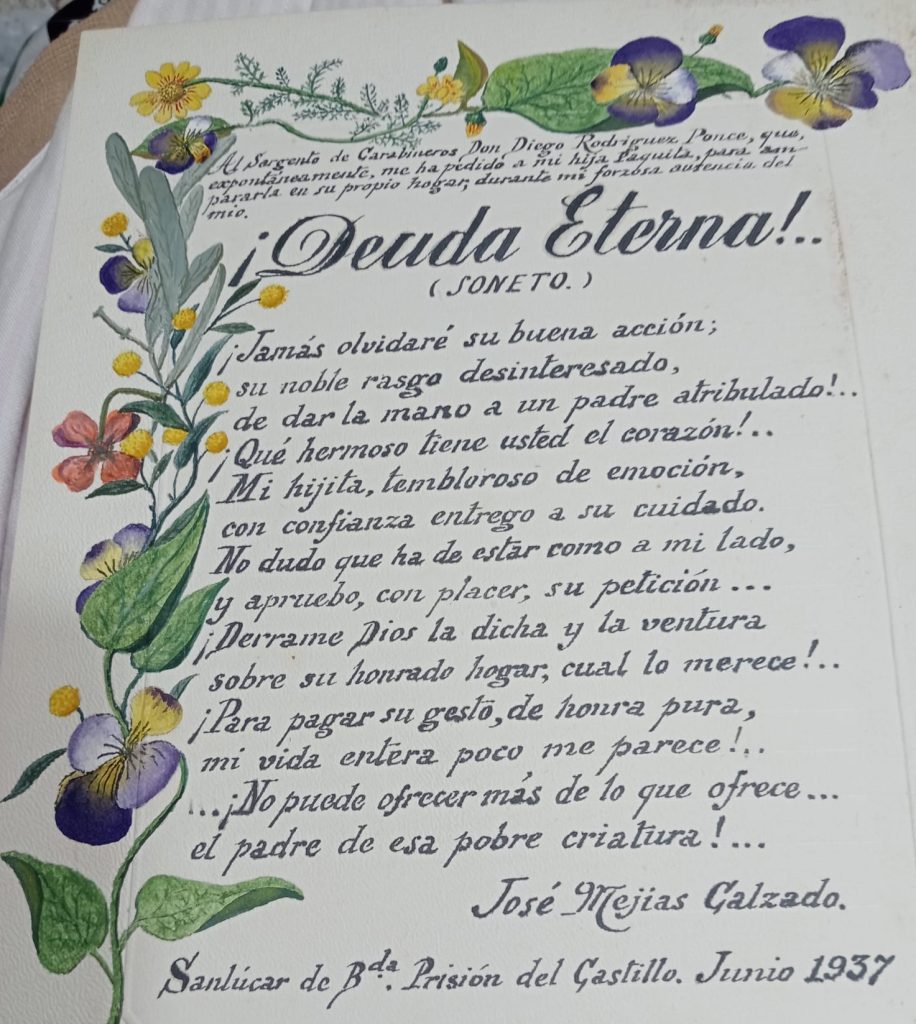 Al Sargento de Carabineros Don Diego Rodriguez Ponce, que,
expontáneamente, me ha pedido a mi hija Paquita, para am-
pararla en su propio hogar, durante mi forzosa ausencia del
mio.
¡Deuda Eterna!..
(SONETO.)
¡Jamás olvidaré su buena acción;
su noble rasgo desinteresado,
de dar la mano a un padre atribulado!..
¡Qué hermoso tiene usted el corazón!..
Mi hijita, tembloroso de emoción,
con confianza entrego a su cuidado.
No dudo que ha de estar como a mi lado,
y apruebo, con placer, su petición...
¡Derrame Dios la dicha y la ventura
sobre su honrado hogar, cual lo merece!..
¡Para pagar su gesto, de honra pura,
mi vida entera poco me parece!..
...¡No puede ofrecer más de lo que ofrece...
el padre de esa pobre criatura!...
José Mejias Calzado.
Sanlúcar de Bda. Prisión del Castillo. Junio 1937